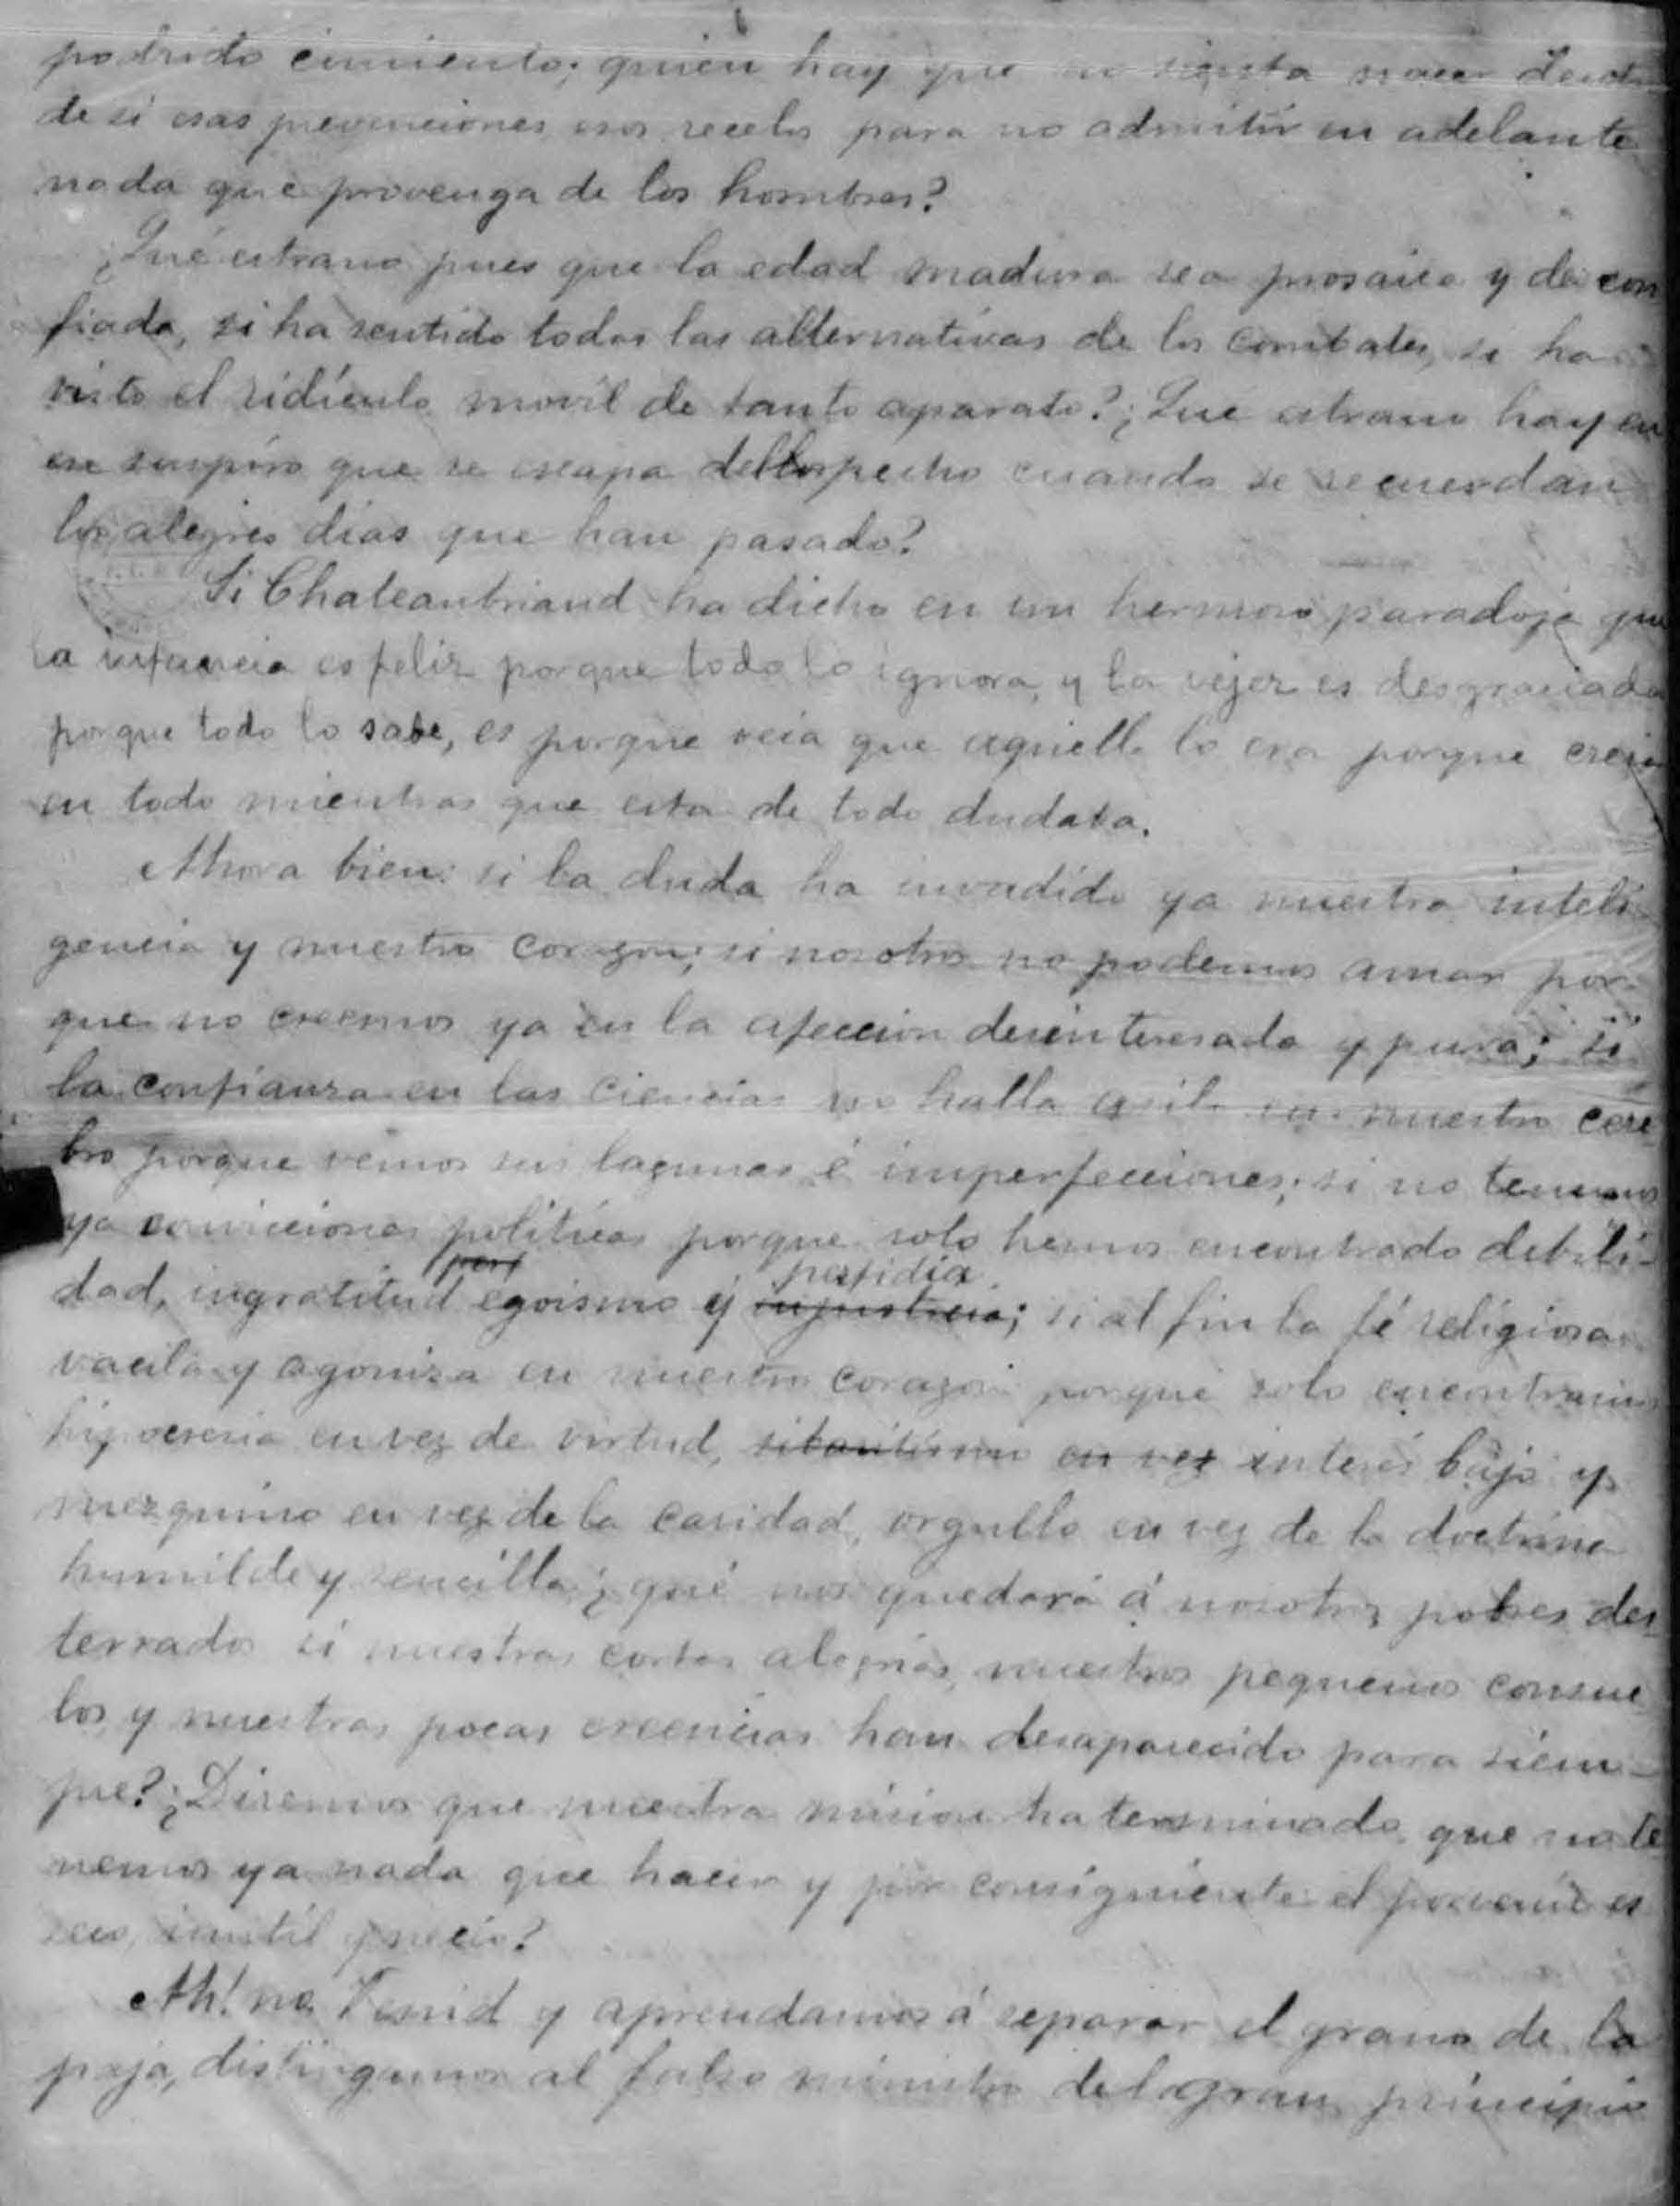 podrido cimiento; quien hay que no sienta nacer dentro
de si esas prevenciones, esos recelos para no admitir en adelante
nada que provenga de los hombres?
¿Qué estraño pues que la edad madura sea prosaica y descon
fiada, si ha sentido todas las alternativas de los combates, si ha
visto el ridículo movil de tanto aparato? ¿Que estraño hay en
ese suspiro que se escapa del pecho cuando se recuerdan
los alegres dias que han pasado?
Si Chateaubriand ha dicho en un hermoso paradoja que
la infancia es feliz porque todo lo ignora, y la vejez es desgraciada
porque todo lo sabe, es porque veia que aquella lo era porque creia
en todo mientras que esta de todo dudaba.
Ahora bien: si la duda ha invadido ya nuestra inteli-
gencia y nuestro corazon; si nosotros no podemos amar por-
que no creemos ya en la afeccion desinteresada y pura; si
la confianza en las ciencias no halla asilo en nuestro cere
bro porque vemos sus lagunas é imperfecciones; si no tenemos
ya convicciones políticas porque solo hemos encontrado debili-
perf perfidia
dad, ingratitud egoismo y injusticia; si al fin la fé religiosa
vacila y agoniza en nuestro corazon porque solo encontramos
hipocresia en vez de virtud, en vez interés bajo y
mezquino en vez de la caridad, orgullo en vez de la doctrina
humilde y sencilla; ¿qué nos quedará á nosotros, pobres des
terrados si nuestras cortas alegrias, nuestros pequeños consue
los y nuestras pocas creencias han desaparecido para siem-
pre? ¿Diremos que nuestra mision ha terminado, que no te
nemos ya nada que hacer y por consiguiente el porvenir es
seco, inutil y necio?
Ah! no. Venid y aprendamos á separar el grano de la
paja, distingamos al falso ministro del gran principio